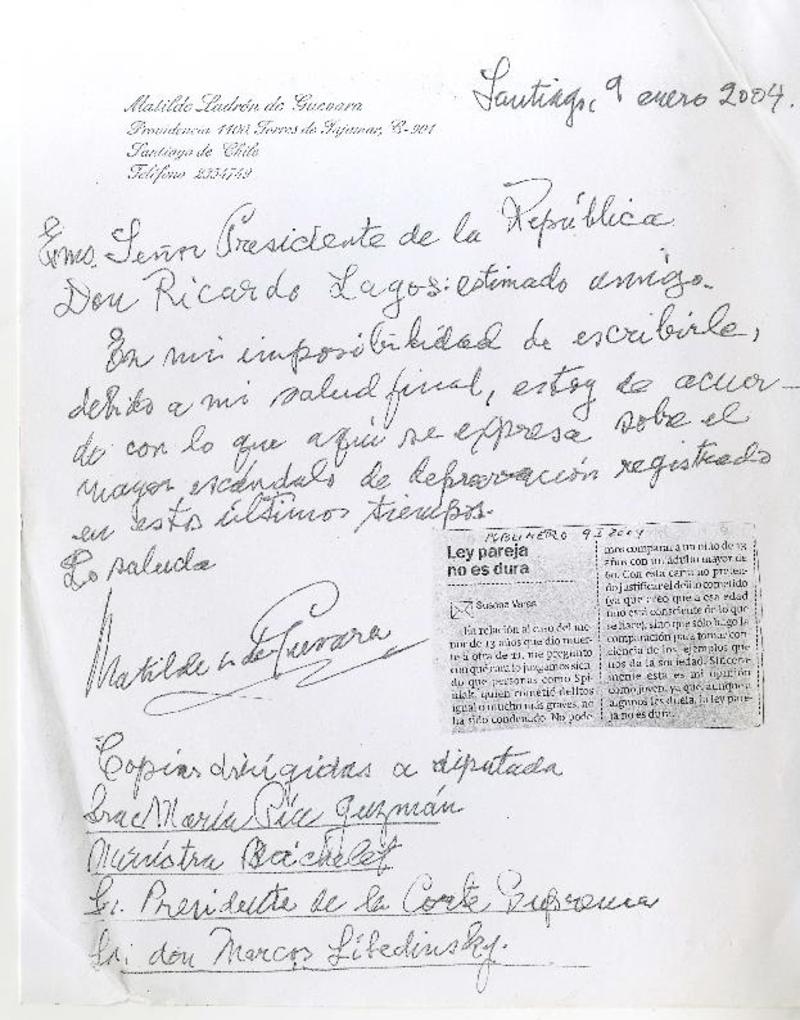 Matilde Ladrón de Guevara
Providencia 1100, Torres de Tajamar, C-901
Santiago de Chile
Teléfono 2354749
Santiago, 9 enero 2004.
Exmo. Señor Presidente de la República
Don Ricardo Lagos: estimado amigo.
En mi imposibilidad de escribirle,
debido a mi salud final, estoy de acuer-
do con lo que aquí se expresa sobre el
mayor escándalo de depravación registrado
en estos últimos tiempos.
Lo saluda
Matilde L. de Guevara
PUBLIMETRO 9-1-2004
Ley pareja
no es dura
Susana Varas
En relación al caso del me-
nor de 13 años que dio muer-
te a otra de 11, me pregunto
con qué cara lo juzgamos sien-
do que personas como Spi-
niak, quien cometió delitos
igual o mucho más graves, no
ha sido condenado. No pode-
mos comparar a un niño de 13
años con un adulto mayor de
60. Con esta carta no preten-
do justificar el delito cometido
(ya que creo que a esa edad
uno está consciente de lo que
se hace), sino que sólo hago la
comparación para tomar con-
ciencia de los ejemplos que
nos da la sociedad. Sincera-
mente esta es mi opinión
como joven, ya que, aunque a
algunos les duela, la ley pare-
ja no es dura.
Copias dirigidas a diputada
Sra María Pía Guzmán
Ministra Bachelet
Sr. Presidente de la Corte Suprema
Sr. don Marcos Libedinsky.